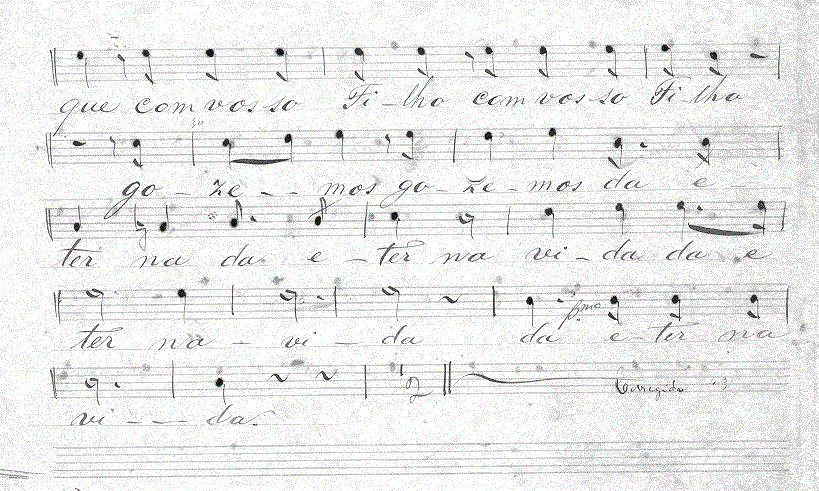 que com vos-so Fi-lho com vos-so Fi-lho
go-ze--mos go-ze-mos da e
ter na da e-ter na vi-da da e
ter na-vi-da da e-ter na
vi---da.